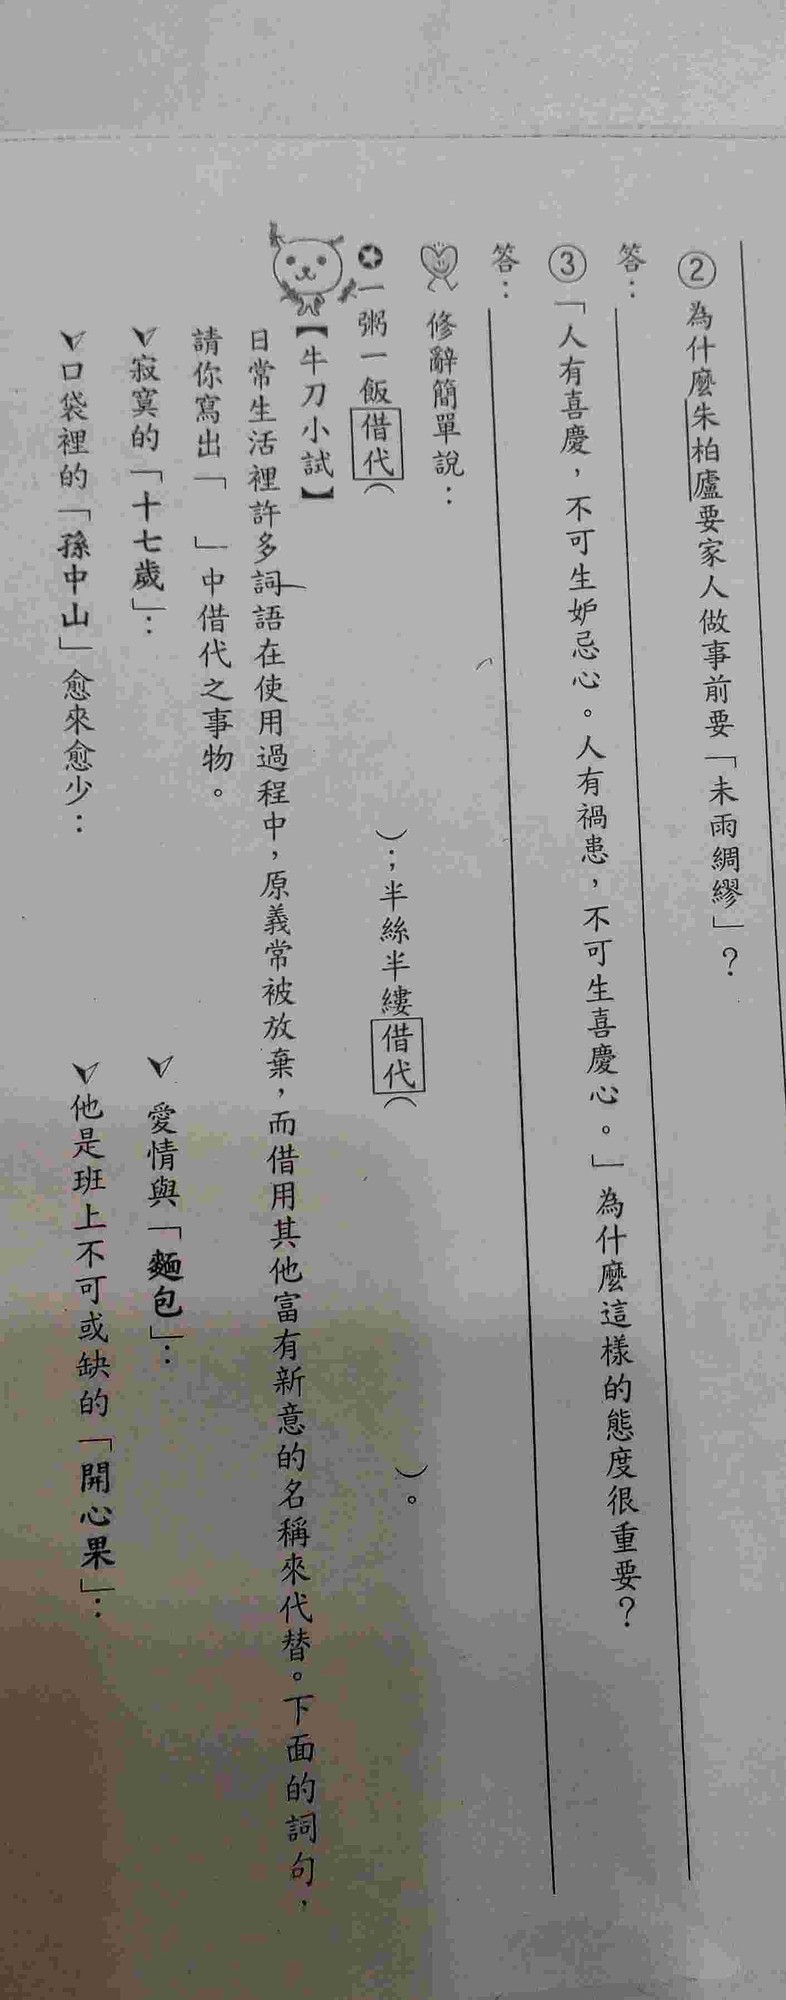 ②為什麼朱柏廬要家人做事前要「未雨綢繆」？
答：
③「人有喜慶，不可生妒忌心。人有禍患，不可生喜慶心。」為什麼這樣的態度很重要？
答：
修辭簡單說：
✪一粥一飯借代（　　　）；半絲半縷借代（　　　）。
【牛刀小試】
日常生活裡許多詞語在使用過程中，原義常被放棄，而借用其他富有新意的名稱來代替。下面的詞句，
請你寫出「　」中借代之事物。
寂寞的「十七歲」：　愛情與「麵包」：
口袋裡的「孫中山」愈來愈少：　他是班上不可或缺的「開心果」：